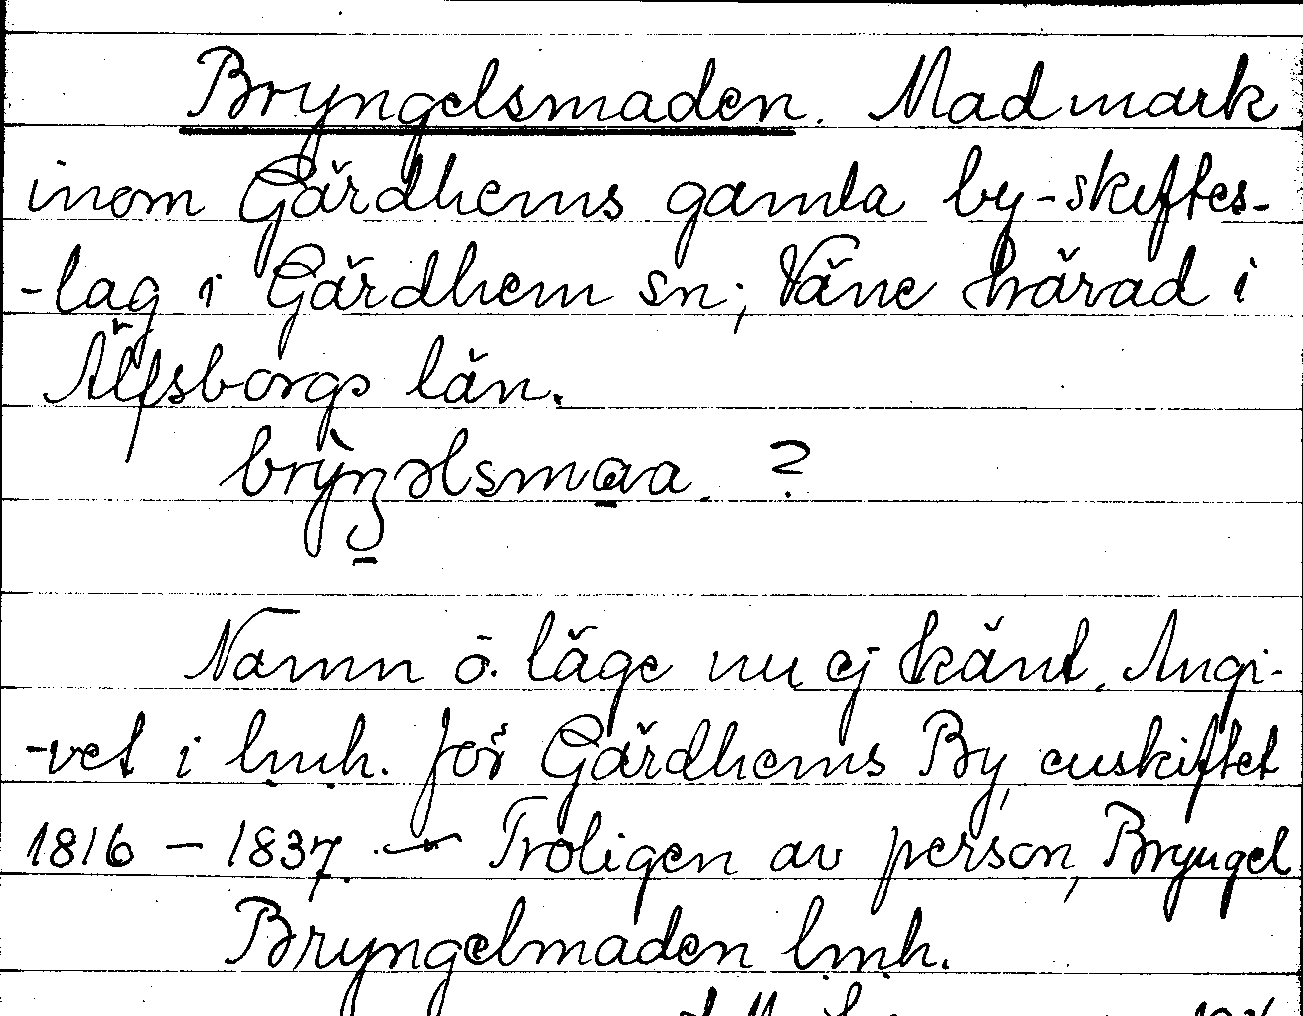 Bryngelsmaden. Madmark
inom Gärdhems gamla by-skiftes-
-lag i Gärdhem sn; Väne härad i
Älfsborgs län.
brỳŋəlsmaa. ?
Namn o. läge nu ej känt. Angi-
-vet i lmh. för Gärdhems By, enskiftet
1816 - 1837. - Troligen av person, Bryngel
Bryngelmaden lmh.